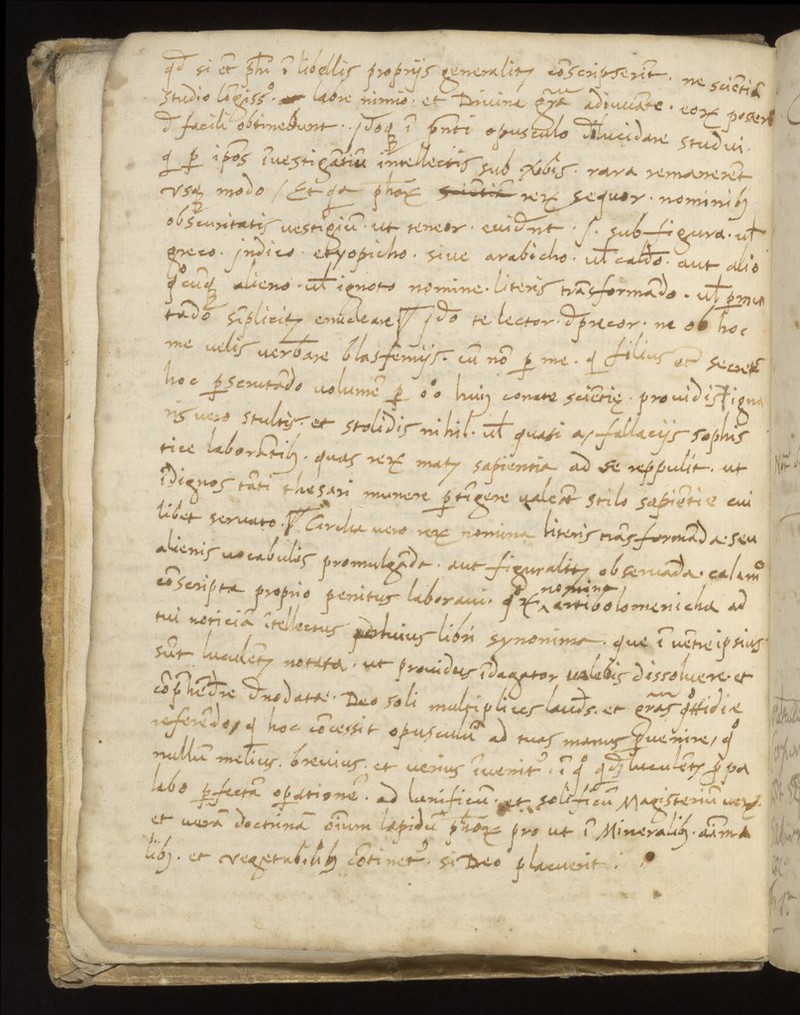 qd si et phi i libellis proprijs generalitz coscripserit. ne scientia
studio logiss°. labore nimio. et Divina gra adiuuate. eorz
d facili obtinebunt. Idoq i pnti opusculo dilucidare studui.
q p ipos iuestigatiu intellectus sub nobis. rara remaneret
usq modo / Et qa phorz rerz sequor. nominibz
obscuritatis uestigiu. ut teneor. euidnt. s. sub figura. ul
greco. indico. etyopicho. siue arabicho. ul caldeo. aut alio
q°cuq alieno. ul ignoto nomine. literis trasformado. ul pmu
tado simplicitz enucleare. Ido te lector. dprecor. ne ob hoc
me uelis uerbare blasfemijs. cu no p me. q filius et secreta
hoc pscrutado uolume p huiz conate scietie. prouidis igna
ris uero stultis. et stolidis nihil. ul quasi ax fallacijs sophis
tice laboratibz. quas rerz matz sapientia ad se reppulit. ut
idignos tati thesari munere ptigere ualeat stilo sapietie cui
libet seruato. Circha uero rerz nomina literis trasformada. seu
alienis uocabulis promulgada. aut figuralitz obseruada. calamo
coscripta proprio penitus laboraui. q°rz nomina artibolomenicha ad
tui noticia itellectus huius libri synonima. que i uetre ipsius
sut luculetz notata. ut prouidus idagator ualebis dissoluere. et
cophedre dnodatae. Deo soli multiplices laudes. et gras q°ttidie
referedo, q hoc cocessit opusculu ad tuas manus puenire, q°
nullu melius. breuius. et uerius iuenit. i q° luculetz ppa
labo pfecta opatione. ad lunificu. et solificu Magisteriu uerz.
et uera doctrina oium lapidu phorz pro ut i Mineralibz. aima
libz. et uegetabilibz cotinet. si Deo placuerit :